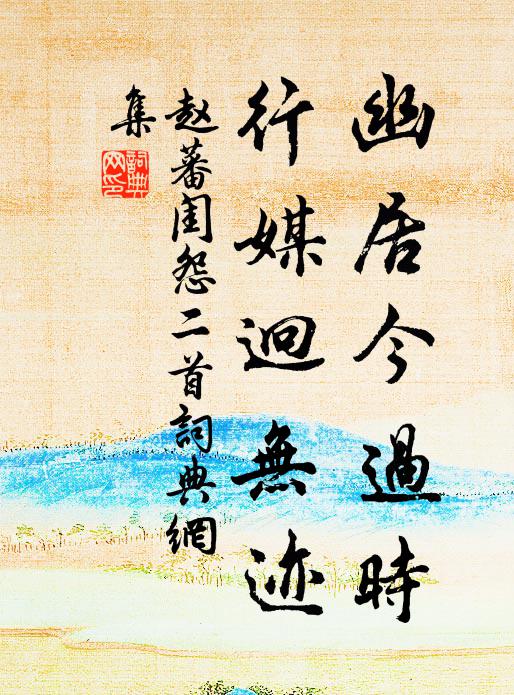 幽居今過時
行媒迥無迹
赵蕃閨怨二首詞典網
集
詞典網印